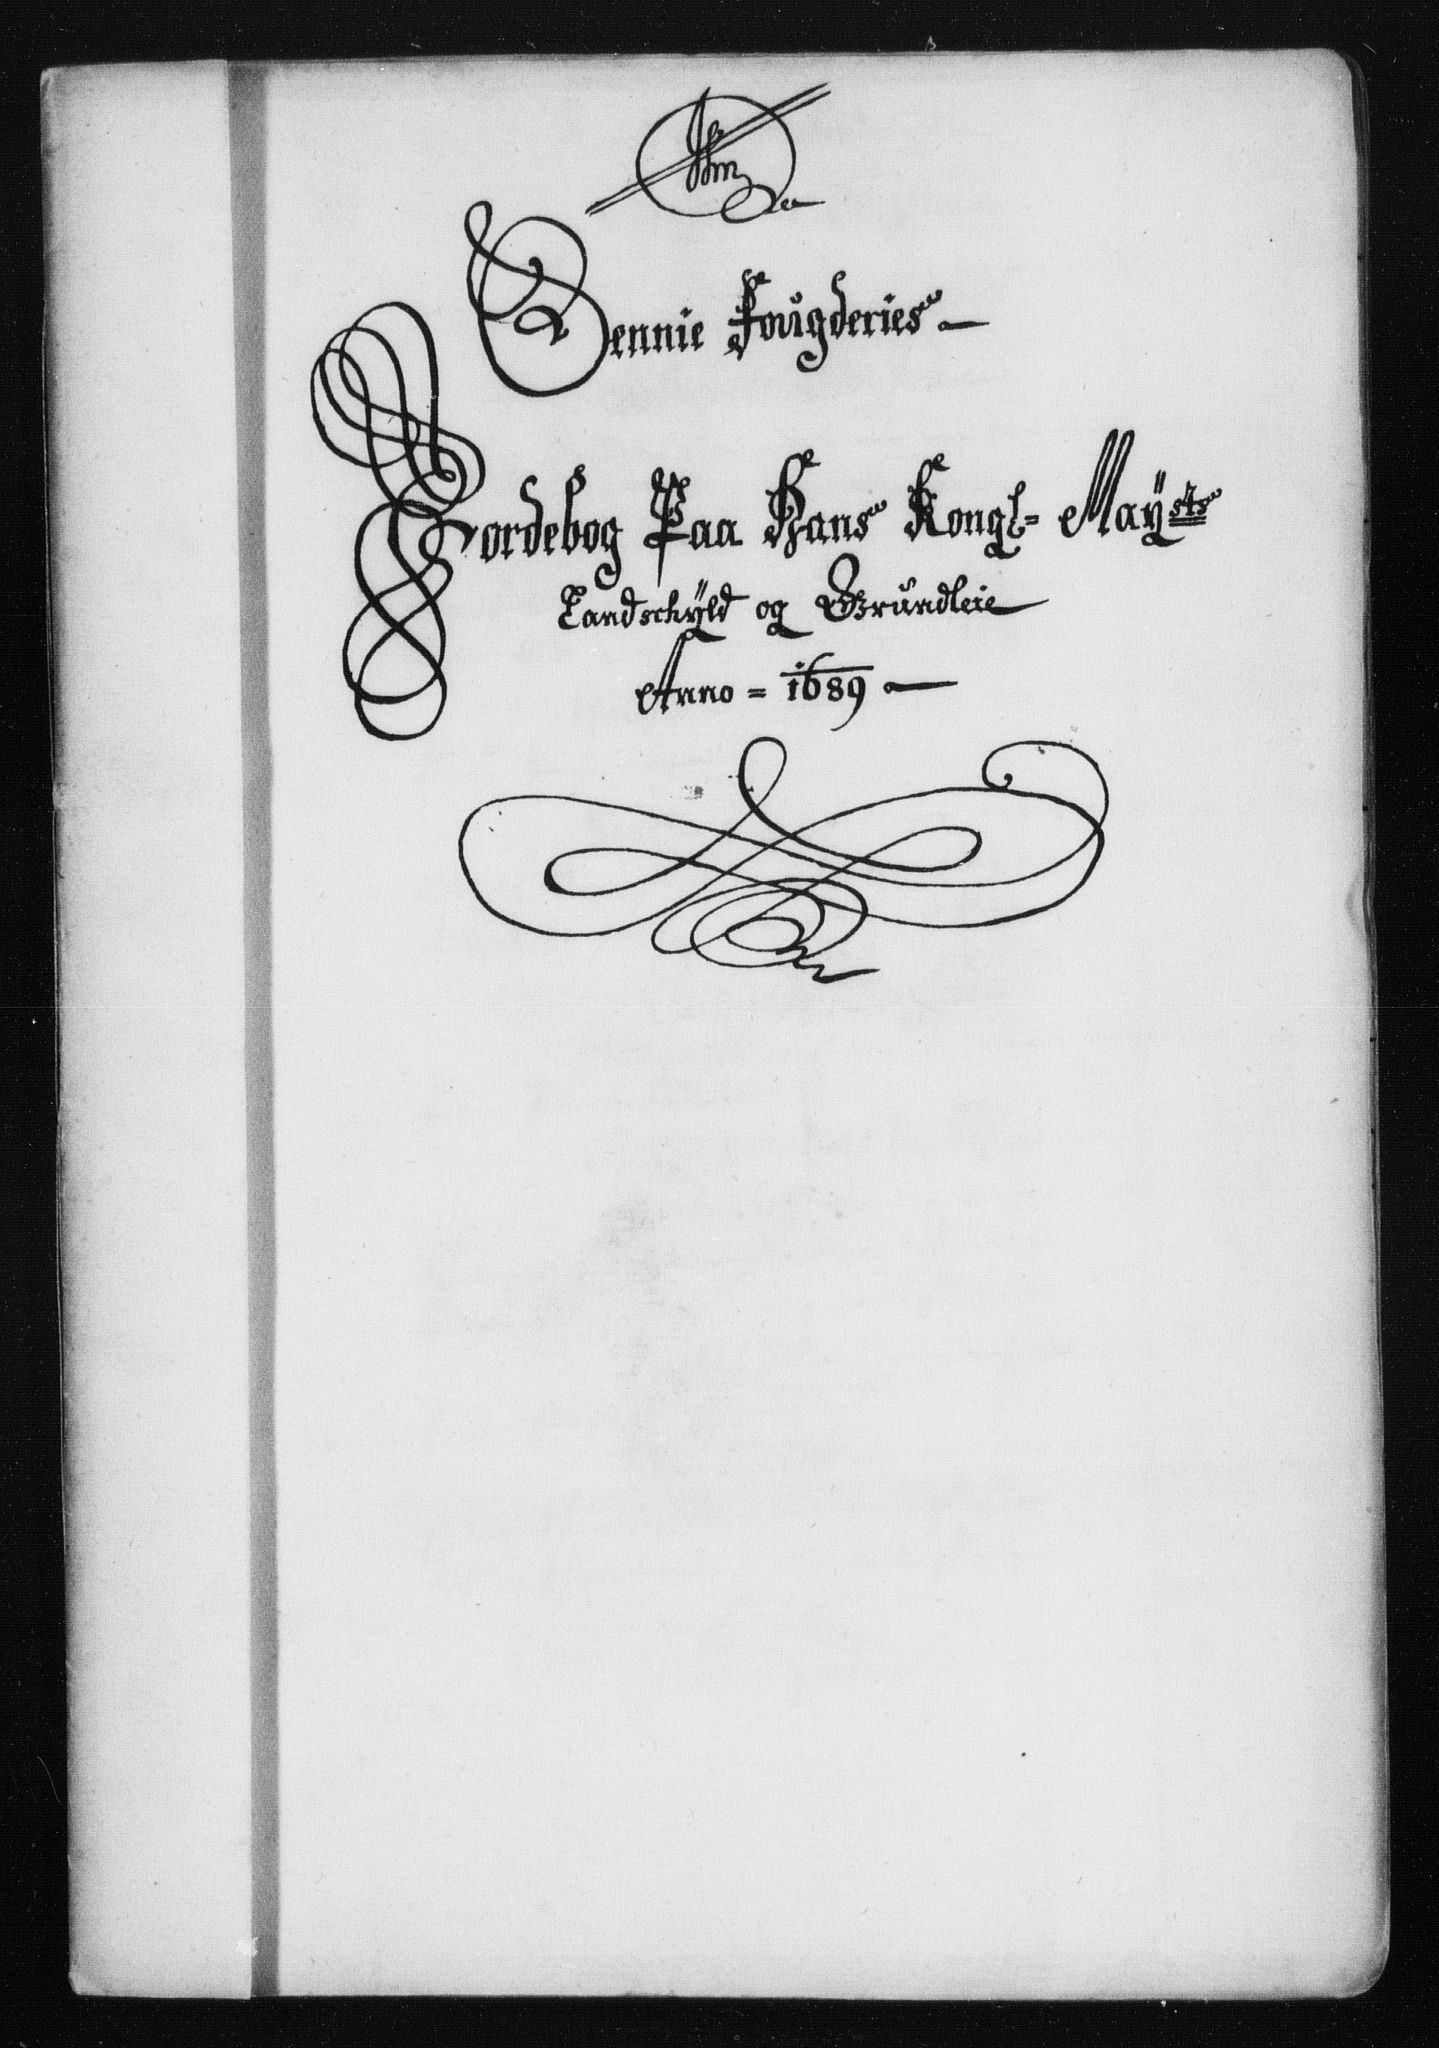 Sennie Fougderies
Jordebog Paa Hans Kongl= Maÿsts
Landschÿld og Grundleie
Anno = 1689